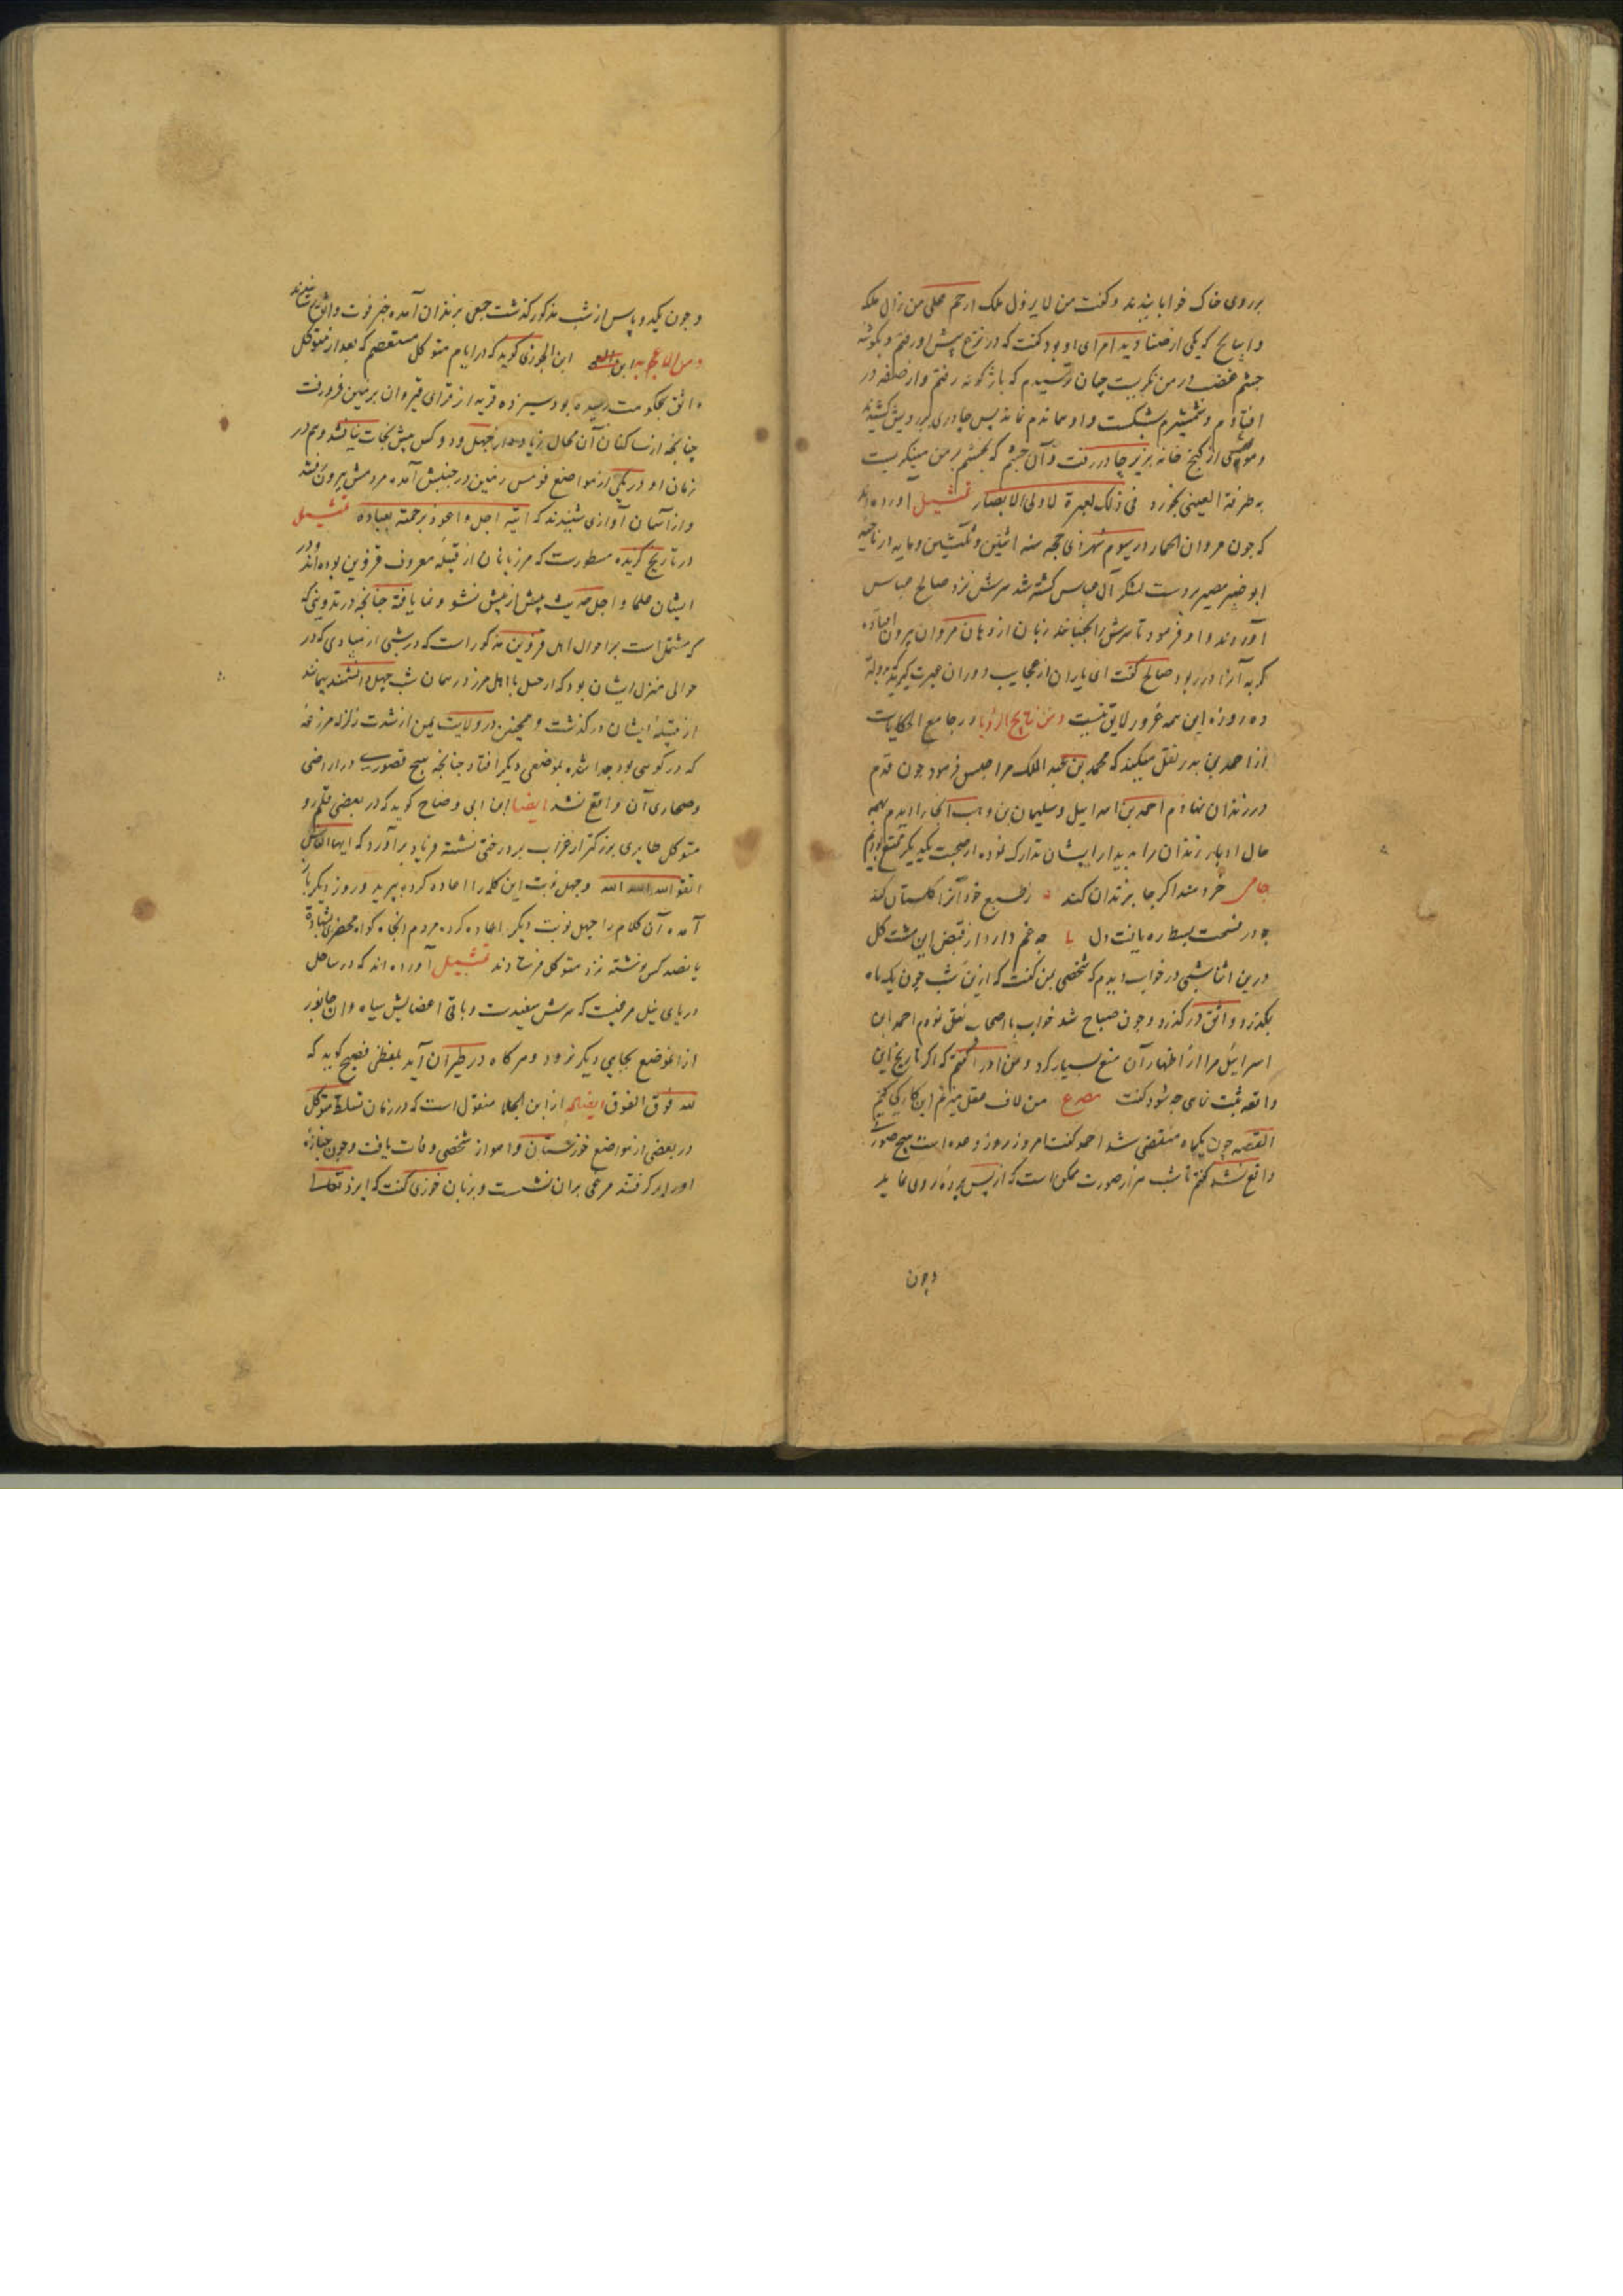 بر روی خاک خوابانیدند و گفت من لا یزول ملک ارحم علی من زال ملکه
و ایتاخ که یکی از صنادید امرای او بود گفت که در نزع پیش او رفتم و بگوشه
چشم غضب در من نگریست چنان ترسیدم که باژگونه رفتم و از صفه در
افتادم و شمشیرم بشکست و او نماندم نماند پس چادری بر رویش کشیدند
و موشی از کنج خانه بزیر چادر رفت و آن چشم که بخشم بر من مینگریست
به طرفة العینی بخورد فی ذلک لعبرة لاولی الابصار تمثیل آورده‌اند
که چون مروان الحمار در سیوم شهر ذی حجه سنه اثنین و ثلثین و مایه در ناحیه
ابوصیر مصر بر دست لشکر آل عباس کشته شد سرش نزد صالح عباس
آوردند و او فرمود تا سرش را بجنبانند زبان از دهان مروان بیرون افتاده
گربه آنرا در ربود صالح گفت ای یاران از عجایب دوران عبرت گیرید
ده روزه این همه غرور لایق نیست و من نتایج الرؤیا در جامع الحکایات
از احمد بن مدبر نقل میکند که محمد بن عبد الملک مرا حبس فرمود چون قدم
در زندان نهادم احمد بن اسرائیل و سلیمان بن وهب را آنجا دیدم
حال ادبار زندان را بدیدار ایشان تدارک نموده از صحبت یکدیگر تمتع بودیم
جامی خردمند اگر جا بزندان کند ز طبع خود آنرا گلستان کند
چو در فسحت بسط ره یافت دل چه غم دارد از قبض این مشت گل
درین اثنا شبی در خواب دیدم که شخصی بمن گفت که ازین شب چون یک ماه
بگذرد واثق درگذرد و چون صباح شد خواب با اصحاب نقل نمودم احمد ابن
اسرائیل مرا از اظهار آن منع بسیار کرد و من او را گفتم که اگر تاریخ این
واقعه ثبت نمایی چه شود گفت مصرع من لاف عقل میزنم این کار کی کنم
القصه چون یکماه منقضی شد احمد گفت امروز روز وعده است هیچ صورت
واقع نشد گفتم تا شب هزار صورت ممکن است که از پس پرده روی نماید
و چون
و چون یک دو پاس از شب مذکور گذشت جمعی بر زندان آمده خبر فوت واثق رسانیدند
و من العجایب ابن الجوزی گوید که در ایام متوکل مستعصم که بعد از
واثق بحکومت رسیده بود سیزده قریه از قرای قیروان بزمین فرو رفت
چنانچه از ساکنان آن محال زیاده از چهل و دو کس پیش نجات نیافتند و هم در
زمان او در یکی از مواضع قومس زمین در جنبش آمده مردمش بیرون رفتند
و از آسمان آوازی شنیدند که تمثیل
در تاریخ گزیده مسطورست که مرزبانان از قبیله معروف قزوین بوده‌اند و در
ایشان علما و اجل حدیث پیش از پیش نشو و نما یافته چنانچه در تدوین
که مشتمل است بر احوال اهل قزوین مذکور است که در شبی از مبادی که در
حوالی منزل ایشان بود که از جبل با اهل مرز در همان شب چهل دانشمند
از قبیله ایشان درگذشت و همچنین در ولایت یمن از شدت زلزله مزرعه
که در کوهی بود جدا شده بموضعی دیگر افتاد چنانچه هیچ قصوری در اراضی
و صحاری آن واقع نشد ایضا ابن ابی وضاح گوید که در بعضی قلمرو
متوکل طایری بزرکتر از غراب بر درختی نشسته فریاد برآورد که ایها الناس
اتقوا الله الله الله و چهل نوبت این کلمه را اعاده کرده بپرید و روز دیگر باز
آمده آن کلام را چهل نوبت دیگر اعاده کرده مردم آنجا محضری بشهادة
پانصد کس نوشته نزد متوکل فرستادند تمثیل آورده اند که در ساحل
دریای نیل مرغیست که سرش سفیدست و باقی اعضایش سیاه و آن جانور
از آن موضع بجایی دیگر نرود و هر گاه در طیران آید بلفظی فصیح گوید که
لله فوق الفوق ایضا از ابن الجلا منقول است که در زمان تسلط متوکل
در بعضی از مواضع خوزستان و اهواز شخصی وفات یافت و چون جنازه
او را برگرفتند مرغی بران نشست و بزبان خوزی گفت که ایزد تعالی